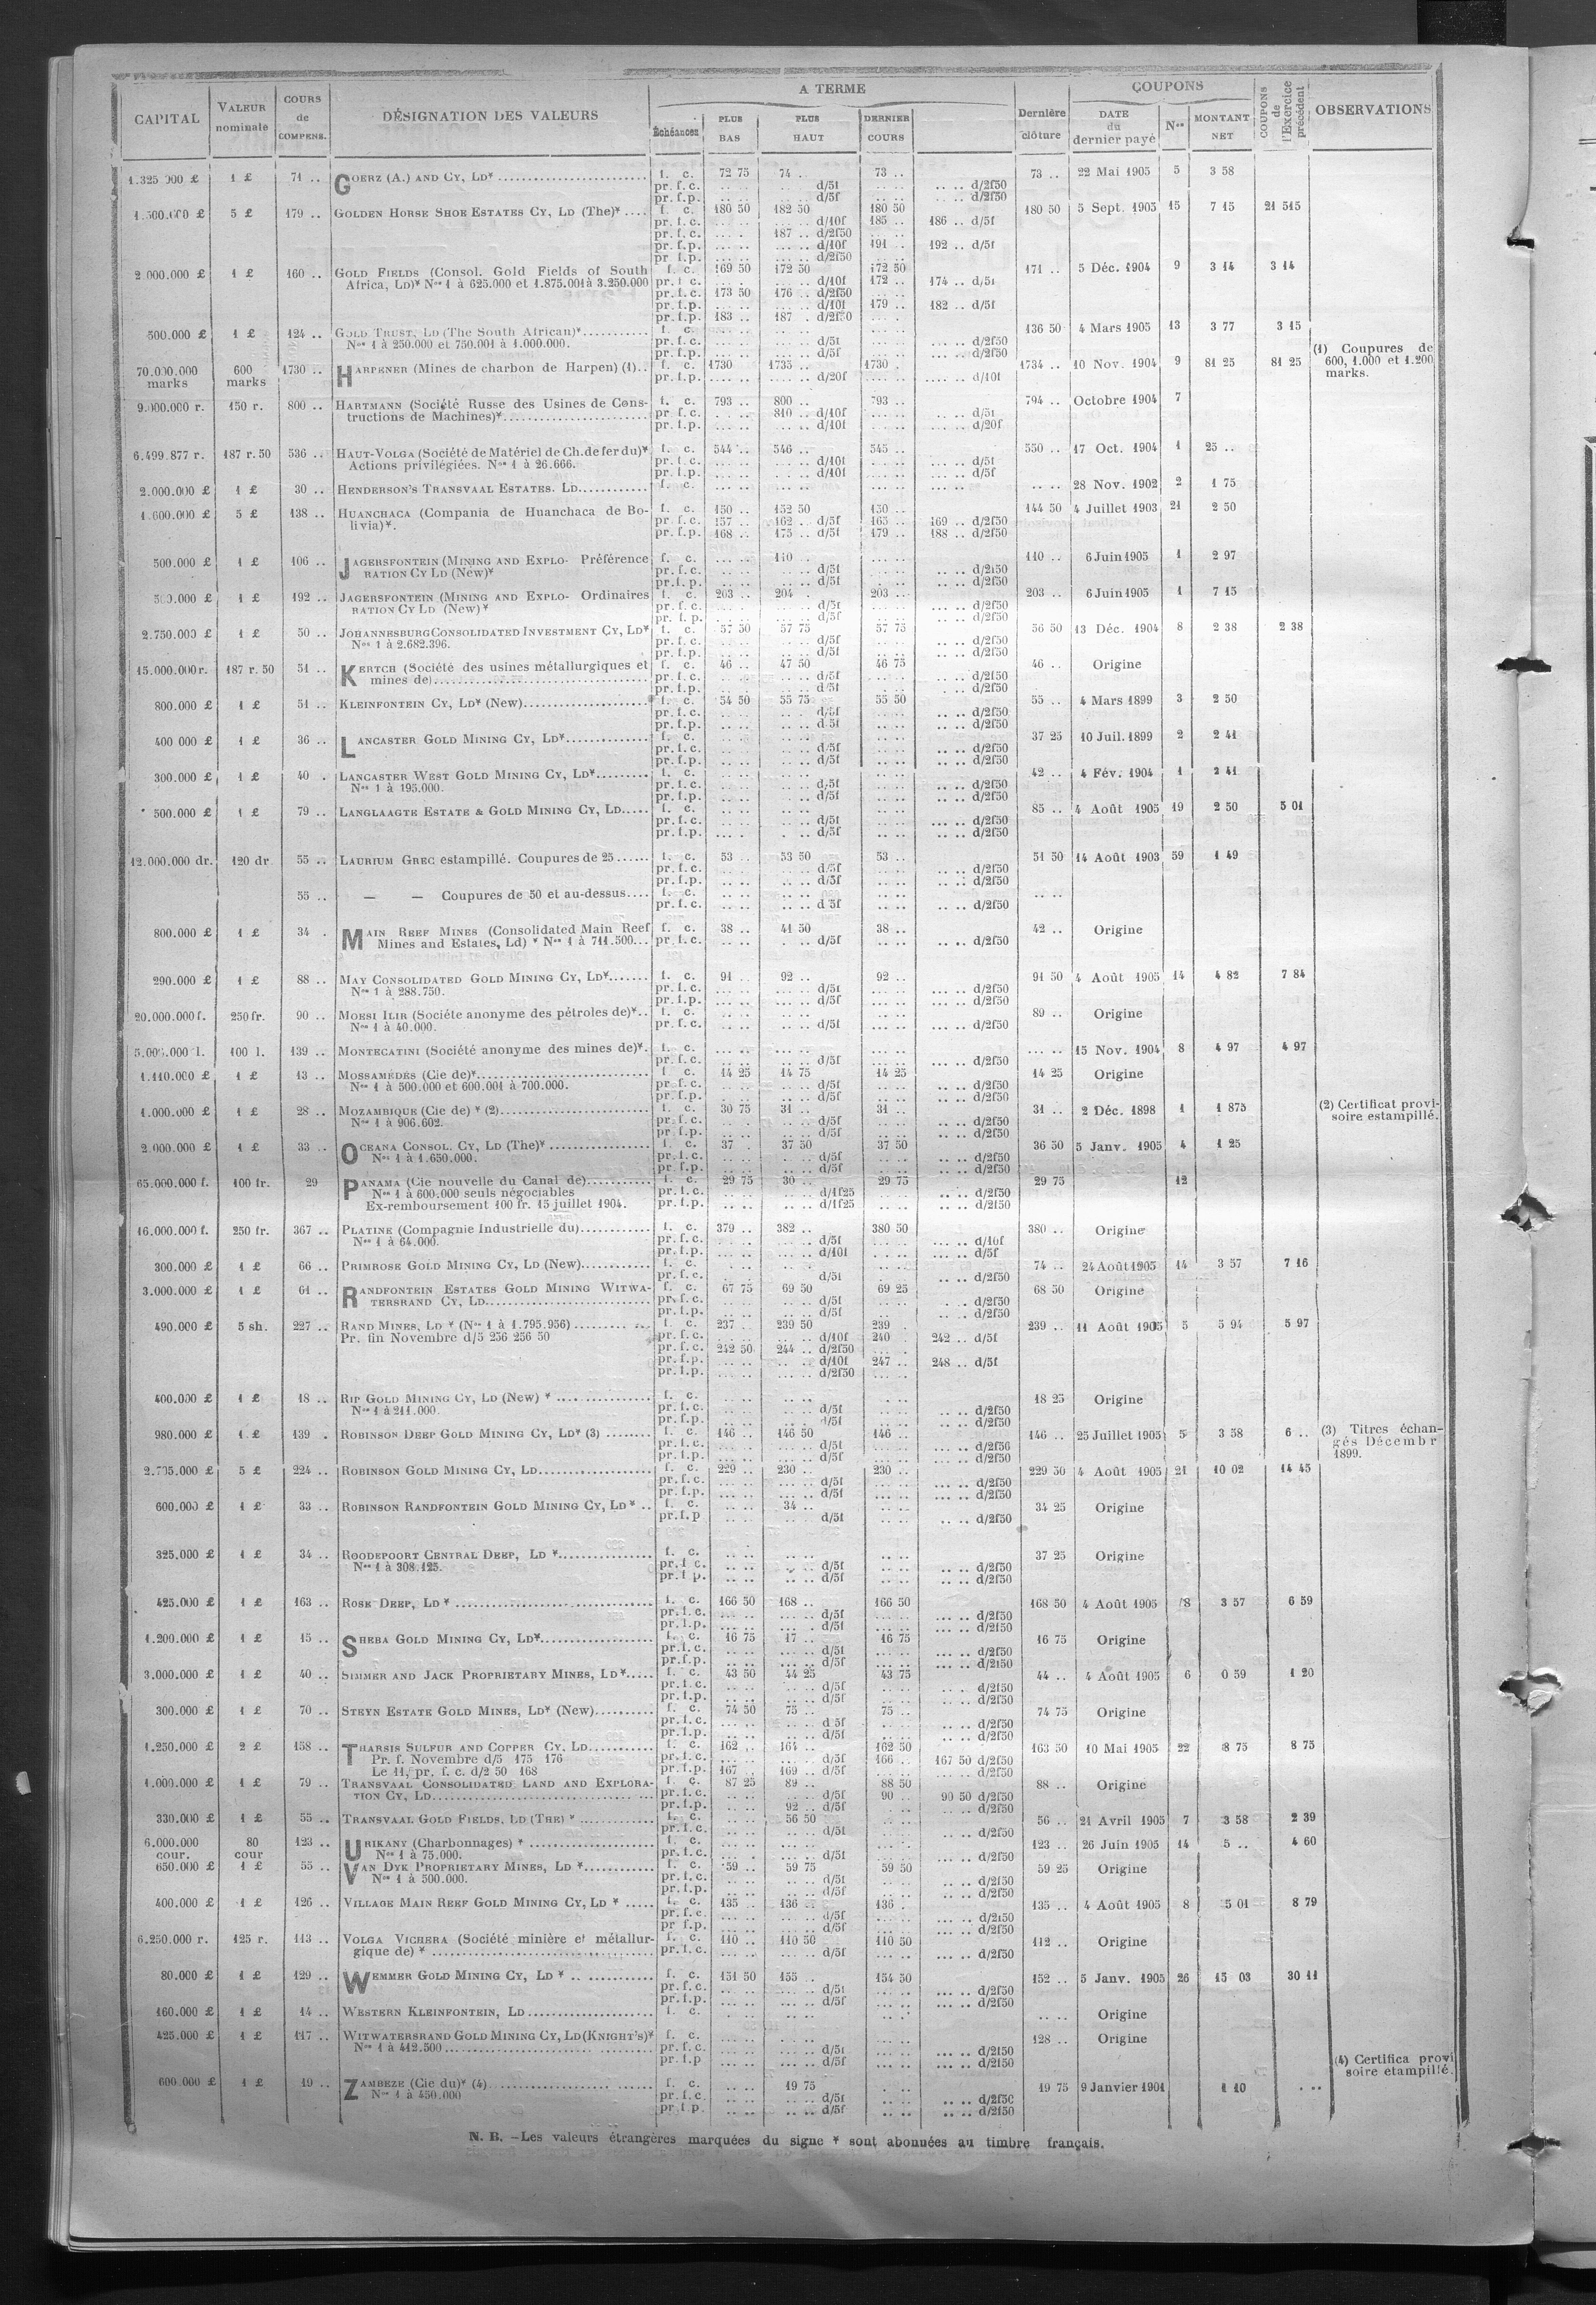 CAPITAL | VALEUR nominale | COURS de COMPENS. | DÉSIGNATION DES VALEURS | A TERME | Échéances | PLUS BAS | PLUS HAUT | DERNIER COURS | Dernière clôture | COUPONS | DATE du dernier payé | Nos | MONTANT NET | COUPONS de l'Exercice précédent | OBSERVATIONS
1.325 000 £ 1 £ 71 .. GOERZ (A.) AND CY, LD* f. c. 72 75 74 .. 73 .. 73 .. 22 Mai 1905 5 3 58
pr. f. c. d/5f d/2f50
pr. f. p. d/5f d/2f50
5 £ 179 .. GOLDEN HORSE SHOE ESTATES CY, LD (The)* f. c. 180 50 182 50 180 50 180 50 5 Sept. 1905 15 7 15 21 515
pr. f. c. d/10f 185 .. 186 .. d/5f
pr. f. c. 187 .. d/2f50
pr. f. p. d/10f 191 .. 192 .. d/5f
pr. f. p. d/2f50
2.000.000 £ 1 £ 160 .. GOLD FIELDS (Consol. Gold Fields of South f. c. 169 50 172 50 172 50 171 .. 5 Déc. 1904 9 3 14 3 14
Africa, LD)* Nos 1 à 625.000 et 1.875.001 à 3.250.000 pr. f. c. d/10f 172 .. 174 .. d/5f
pr. f. c. 173 50 176 .. d/2f50
pr. f. p. d/10f 179 .. 182 .. d/5f
pr. f. p. 183 .. 187 . d/2f50
500.000 £ 1 £ 124 .. GOLD TRUST, LD (The South African)* f. c. 136 50 4 Mars 1905 13 3 77 3 15
Nos 1 à 250.000 et 750.001 à 1.000.000. pr. f. c. d/5f d/2f50
pr. f. p. d/5f d/2f50
(1) Coupures de 600, 1.000 et 1.200 marks.
70.000.000 marks 600 marks 1730 .. HARPENER (Mines de charbon de Harpen) (1).. f. c. 1730 1735 .. 1730 . 1734 .. 10 Nov. 1904 9 81 25 81 25
pr. f. p. d/20f d/10f
9.000.000 r. 150 r. 800 .. HARTMANN (Société Russe des Usines de Cons- f. c. 793 .. 800 .. 793 .. 794 .. Octobre 1904 7
tructions de Machines)* pr. f. c. 810 .. d/10f d/5f
pr. f. p. d/10f d/20f
6.499.877 r. 187 r. 50 536 .. HAUT-VOLGA (Société de Matériel de Ch. de fer du)* f. c. 544 .. 546 .. 545 .. 550 .. 17 Oct. 1904 1 25 ..
Actions privilégiées. Nos 1 à 26.666. pr. f. c. d/10f d/5f
pr. f. p. d/10f d/5f
2.000.000 £ 1 £ 30 .. HENDERSON'S TRANSVAAL ESTATES. LD f. c. 28 Nov. 1902 2 1 75
1.600.000 £ 5 £ 138 .. HUANCHACA (Compania de Huanchaca de Bo- f. c. 150 .. 152 50 150 .. 144 50 4 Juillet 1903 21 2 50
livia)*. pr. f. c. 157 .. 162 .. d/5f 165 .. 169 .. d/2f50
pr. f. p. 168 .. 175 .. d/5f 179 .. 188 .. d/2f50
500.000 £ 1 £ 106 .. JAGERSFONTEIN (MINING AND EXPLO- Préférence f. c. 110 .. 110 .. 6 Juin 1905 1 2 97
RATION CY LD (New)* pr. f. c. d/5f d/2f50
pr. f. p. d/5f d/2f50
500.000 £ 1 £ 192 .. JAGERSFONTEIN (MINING AND EXPLO- Ordinaires f. c. 203 .. 204 . 203 .. 203 .. 6 Juin 1905 1 7 15
RATION CY LD (New)* pr. f. c. d/5f d/2f50
pr. f. p. d/5f d/2f50
2.750.000 £ 1 £ 50 .. JOHANNESBURG CONSOLIDATED INVESTMENT CY, LD* f. c. 57 50 57 75 57 75 56 50 13 Déc. 1904 8 2 38 2 38
Nos 1 à 2.682.396. pr. f. c. d/5f d/2f50
pr. f. p. d/5f d/2f50
15.000.000 r. 187 r. 50 51 .. KERTCH (Société des usines métallurgiques et f. c. 46 .. 47 50 46 75 46 .. Origine
mines de) pr. f. c. d/5f d/2f50
pr. f. p. d/5f d/2f50
800.000 £ 1 £ 51 .. KLEINFONTEIN CY, LD* (New) f. c. 54 50 55 75 55 50 55 .. 4 Mars 1899 3 2 50
pr. f. c. d/5f d/2f50
pr. f. p. d/5f d/2f50
400 000 £ 1 £ 36 .. LANCASTER GOLD MINING CY, LD* f. c. 37 25 10 Juil. 1899 2 2 41
pr. f. c. d/5f d/2f50
pr. f. p. d/5f d/2f50
300.000 £ 1 £ 40 . LANCASTER WEST GOLD MINING CY, LD* f. c. 42 .. 4 Fév. 1904 1 2 41
Nos 1 à 195.000. pr. f. c. d/5f d/2f50
pr. f. p. d/5f d/2f50
500.000 £ 1 £ 79 .. LANGLAAGTE ESTATE & GOLD MINING CY, LD f. c. 85 .. 4 Août 1905 19 2 50 5 01
pr. f. c. d/5f d/2f50
pr. f. p. d/5f d/2f50
12.000.000 dr. 120 dr 55 .. LAURIUM GREC estampillé. Coupures de 25 f. c. 53 .. 53 50 53 .. 51 50 14 Août 1903 59 1 49
pr. f. c. d/5f d/2f50
pr. f. p. d/5f d/2f50
55 .. — — Coupures de 50 et au-dessus f. c.
pr. f. c. d/5f d/2f50
800.000 £ 1 £ 34 . MAIN REEF MINES (Consolidated Main Reef f. c. 38 .. 41 50 38 .. 42 .. Origine
Mines and Estates, Ld) * Nos 1 à 711.500 pr. f. c. d/5f d/2f50
290.000 £ 1 £ 88 .. MAY CONSOLIDATED GOLD MINING CY, LD* f. c. 91 .. 92 .. 92 .. 91 50 4 Août 1905 14 4 82 7 84
Nos 1 à 288.750. pr. f. c. d/5f d/2f50
pr. f. p. d/5f d/2f50
20.000.000 f. 250 fr. 90 .. MOESI ILIR (Société anonyme des pétroles de)* f. c. 89 .. Origine
Nos 1 à 40.000. pr. f. c. d/5f d/2f50
100 l. 139 .. MONTECATINI (Société anonyme des mines de)*. f. c. 15 Nov. 1904 8 4 97 4 97
pr. f. c. d/5f d/2f50
1.110.000 £ 1 £ 13 .. MOSSAMÉDÈS (Cie de)* f. c. 14 25 14 75 14 25 14 25 Origine
Nos 1 à 500.000 et 600.001 à 700.000. pr. f. c. d/5f d/2f50
pr. f. p. d/5f d/2f50
1.000.000 £ 1 £ 28 .. MOZAMBIQUE (Cie de) * (2) f. c. 30 75 31 .. 31 .. 31 .. 2 Déc. 1898 1 1 875 (2) Certificat provi-
Nos 1 à 906.602. pr. f. c. d/5f d/2f50 soire estampillé.
pr. f. p. d/5f d/2f50
2.000.000 £ 1 £ 33 .. OCEANA CONSOL. CY, LD (The)* f. c. 37 . 37 50 37 50 36 50 5 Janv. 1905 4 1 25
Nos 1 à 1.650.000. pr. f. c. d/5f d/2f50
pr. f. p. d/5f d/2f50
65.000.000 f. 100 fr. 29 PANAMA (Cie nouvelle du Canal de) f. c. 29 75 30 .. 29 75 29 75 12
Nos 1 à 600.000 seuls négociables pr. f. c. d/1f25 d/2f50
Ex-remboursement 100 fr. 15 juillet 1904. pr. f. p. d/1f25 d/2f50
16.000.000 f. 250 fr. 367 .. PLATINE (Compagnie Industrielle du) f. c. 379 .. 382 .. 380 50 380 .. Origine
Nos 1 à 64.000. pr. f. c. d/5f d/10f
pr. f. p. d/10f d/5f
300.000 £ 1 £ 66 .. PRIMROSE GOLD MINING CY, LD (New) f. c. 74 .. 24 Août 1905 14 3 57 7 16
pr. f. c. d/5f d/2f50
3.000.000 £ 1 £ 61 .. RANDFONTEIN ESTATES GOLD MINING WITWA- f. c. 67 75 69 50 69 25 68 50 Origine
TERSRAND CY, LD pr. f. c. d/5f d/2f50
pr. f. p. d/5f d/2f50
490.000 £ 5 sh. 227 .. RAND MINES, LD * (Nos 1 à 1.795.956) f. c. 237 . 239 50 239 . 239 .. 11 Août 1905 5 5 94 5 97
Pr. fin Novembre d/5 256 256 50 pr. f. c. d/10f 240 . 242 .. d/5f
pr. f. c. 242 50 244 .. d/2f50
pr. f. p. d/10f 247 .. 248 .. d/5f
pr. f. p. d/2f50
400.000 £ 1 £ 18 .. RIP GOLD MINING CY, LD (New) * f. c. 18 25 Origine
Nos 1 à 211.000. pr. f. c. d/5f d/2f50
pr. f. p. d/5f d/2f50
980.000 £ 1 £ 139 . ROBINSON DEEP GOLD MINING CY, LD* (3) f. c. 146 .. 146 50 146 .. 146 .. 25 Juillet 1905 5 3 58 6 .. (3) Titres échan-
pr. f. c. d/5f d/2f50 gés Décembr
pr. f. p. d/5f d/2f50 1899.
5 £ 224 .. ROBINSON GOLD MINING CY, LD f. c. 229 .. 230 .. 230 .. 229 50 4 Août 1905 21 10 02 14 45
pr. f. c. d/5f d/2f50
pr. f. p. d/5f d/2f50
600.000 £ 1 £ 33 .. ROBINSON RANDFONTEIN GOLD MINING CY, LD * .. f. c. 34 .. 34 25 Origine
pr. f. p d/5f d/2f50
325.000 £ 1 £ 34 .. ROODEPOORT CENTRAL DEEP, LD * f. c. 37 25 Origine
Nos 1 à 308.125. pr. f. c. d/5f d/2f50
pr. f. p. d/5f d/2f50
425.000 £ 1 £ 163 .. ROSE DEEP, LD * f. c. 166 50 168 .. 166 50 168 50 4 Août 1905 8 3 57 6 59
pr. f. c. d/5f d/2f50
pr. f. p. d/5f d/2f50
1.200.000 £ 1 £ 15 .. SHEBA GOLD MINING CY, LD* f. c. 16 75 17 .. 16 75 16 75 Origine
pr. f. c. d/5f d/2f50
pr. f. p. d/5f d/2f50
3.000.000 £ 1 £ 40 .. SIMMER AND JACK PROPRIETARY MINES, LD* f. c. 43 50 44 25 43 75 44 .. 4 Août 1905 6 0 59 1 20
pr. f. c. d/5f d/2f50
pr. f. p. d/5f d/2f50
300.000 £ 1 £ 70 .. STEYN ESTATE GOLD MINES, LD* (New) f. c. 74 50 75 .. 75 .. 74 75 Origine
pr. f. c. d/5f d/2f50
pr. f. p. d/5f d/2f50
1.250.000 £ 2 £ 158 .. THARSIS SULFUR AND COPPER CY, LD f. c. 162 . 164 .. 162 50 163 50 10 Mai 1905 22 8 75 8 75
Pr. f. Novembre d/5 175 176 pr. f. c. d/5f 166 .. 167 50 d/2f50
Le 11, pr. f. c. d/2 50 168 pr. f. p. 167 .. 169 .. d/5f d/2f50
1.000.000 £ 1 £ 79 .. TRANSVAAL CONSOLIDATED LAND AND EXPLORA- f. c. 87 25 89 .. 88 50 88 .. Origine
TION CY, LD pr. f. c. d/5f 90 .. 90 50 d/2f50
pr. f. p. 92 .. d/5f d/2f50
330.000 £ 1 £ 55 .. TRANSVAAL GOLD FIELDS, LD (THE) * f. c. 56 50 56 .. 21 Avril 1905 7 3 58 2 39
pr. f. c. d/5f d/2f50
6.000.000 cour. 80 cour 123 .. URIKANY (Charbonnages) * f. c. 123 .. 26 Juin 1905 14 5 .. 4 60
Nos 1 à 75.000. pr. f. c. d/5f d/2f50
650.000 £ 1 £ 55 .. VAN DYK PROPRIETARY MINES, LD * f. c. 59 .. 59 75 59 50 59 25 Origine
Nos 1 à 500.000. pr. f. c. d/5f d/2f50
pr. f. p. d/5f d/2f50
400.000 £ 1 £ 126 .. VILLAGE MAIN REEF GOLD MINING CY, LD * f. c. 135 .. 136 .. 136 . 135 .. 4 Août 1905 8 5 01 8 79
pr. f. c. d/5f d/2f50
pr f. p. d/5f d/2f50
6.250.000 r. 125 r. 113 .. VOLGA VICHERA (Société minière et métallur- f. c. 110 .. 110 50 110 50 112 .. Origine
gique de) * pr. f. c. d/5f d/2f50
80.000 £ 1 £ 129 .. WEMMER GOLD MINING CY, LD * f. c. 151 50 155 . 154 50 152 .. 5 Janv. 1905 26 15 03 30 11
pr. f. c. d/5f d/2f50
pr. f. p. d/5f d/2f50
160.000 £ 1 £ 14 .. WESTERN KLEINFONTEIN, LD f. c. Origine
425.000 £ 1 £ 117 .. WITWATERSRAND GOLD MINING CY, LD (KNIGHT'S)* f. c. 128 .. Origine
Nos 1 à 412.500 pr. f. c. d/5f d/2f50
pr. f. p d/5f d/2f50
(4) Certifica provi
soire etampillé.
600.000 £ 1 £ 19 .. ZAMBEZE (Cie du)* (4) f. c. 19 75 19 75 9 Janvier 1901 1 10
Nos 1 à 450.000 pr. f. c. d/5f d/2f50
pr. f. p. d/5f d/2f50
N. B. —Les valeurs étrangères marquées du signe * sont abonnées au timbre français.